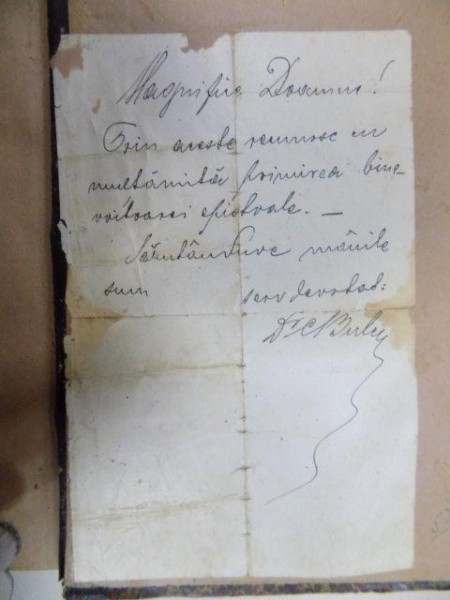 Magnifice Doamne!
Prin aceste recunosc cu
multămită primirea bine-
voitoarei epistoale. —
Sărutându-ve mânile
sum serv devotat:
Dr